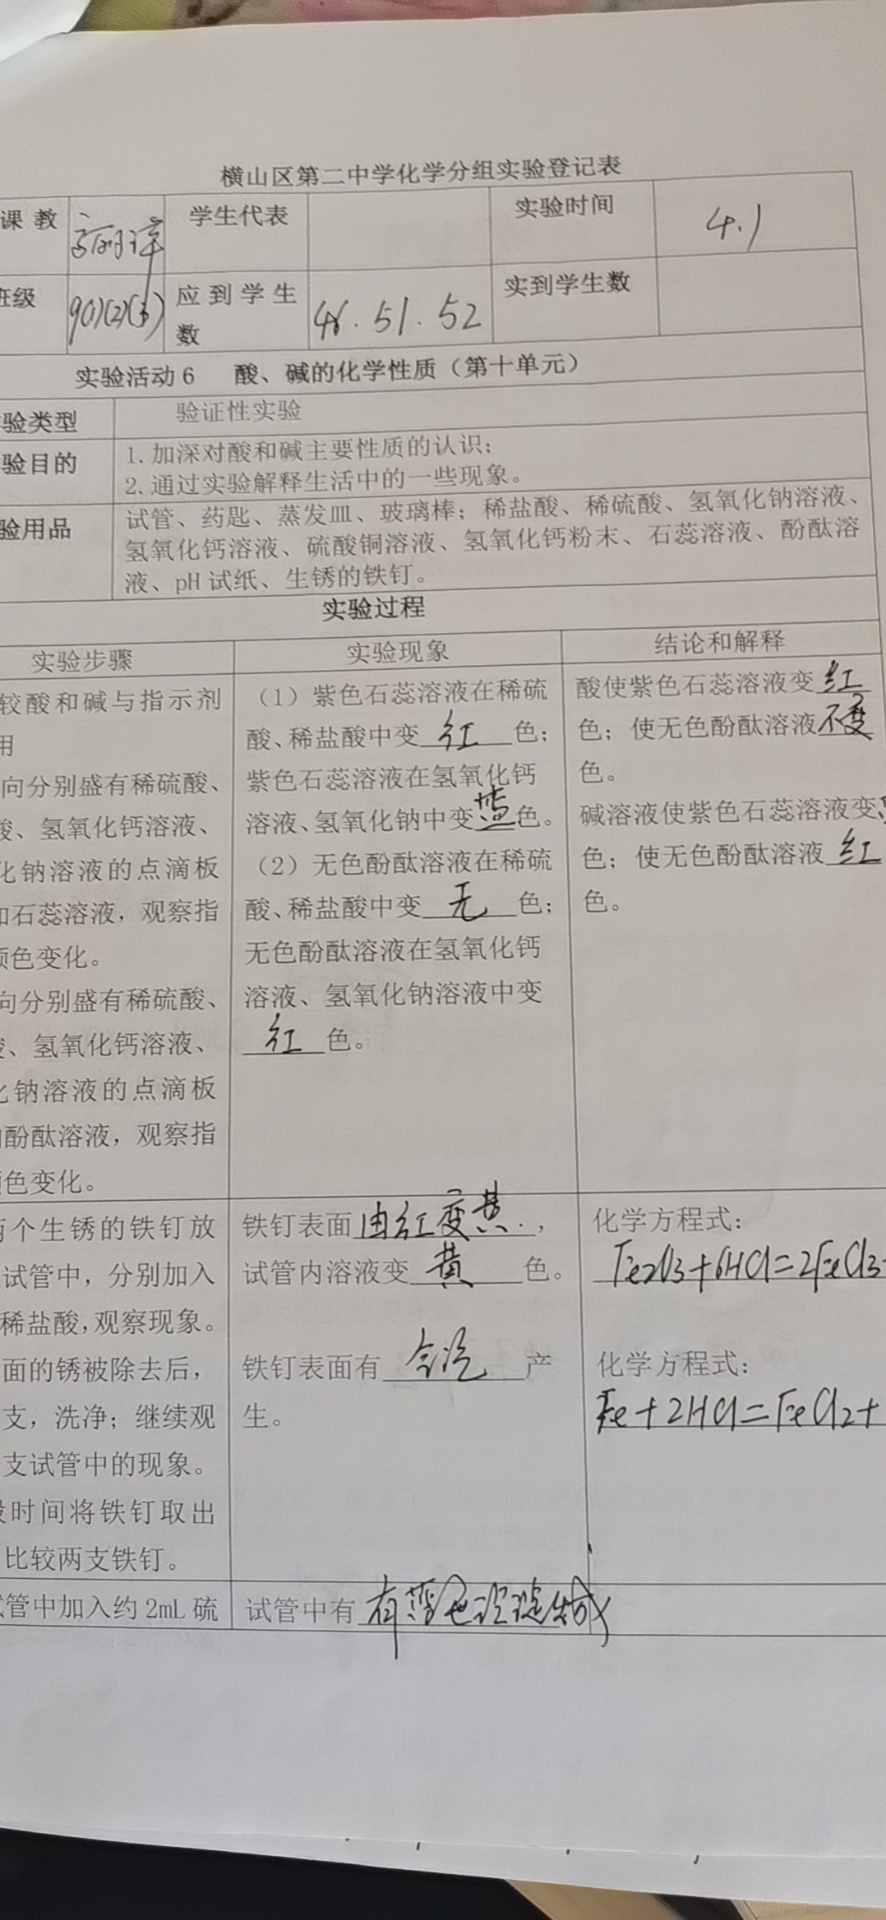 横山区第二中学化学分组实验登记表
课 教 学生代表 实验时间 4.1
班级 9(1)(2)(3) 应到学生 48.51.52 实到学生数
数
实验活动6 酸、碱的化学性质（第十单元）
验类型 验证性实验
验目的 1.加深对酸和碱主要性质的认识；
2.通过实验解释生活中的一些现象。
验用品 试管、药匙、蒸发皿、玻璃棒；稀盐酸、稀硫酸、氢氧化钠溶液、
氢氧化钙溶液、硫酸铜溶液、氢氧化钙粉末、石蕊溶液、酚酞溶
液、pH试纸、生锈的铁钉。
实验过程
实验步骤 实验现象 结论和解释
较酸和碱与指示剂
用
向分别盛有稀硫酸、
酸、氢氧化钙溶液、
化钠溶液的点滴板
加石蕊溶液，观察指
颜色变化。
向分别盛有稀硫酸、
酸、氢氧化钙溶液、
化钠溶液的点滴板
加酚酞溶液，观察指
颜色变化。
（1）紫色石蕊溶液在稀硫
酸、稀盐酸中变红色；
紫色石蕊溶液在氢氧化钙
溶液、氢氧化钠中变蓝色。
（2）无色酚酞溶液在稀硫
酸、稀盐酸中变无色；
无色酚酞溶液在氢氧化钙
溶液、氢氧化钠溶液中变
红色。
酸使紫色石蕊溶液变红
色；使无色酚酞溶液不变
色。
碱溶液使紫色石蕊溶液变
色；使无色酚酞溶液红
色。
两个生锈的铁钉放
试管中，分别加入
稀盐酸，观察现象。
面的锈被除去后，
支，洗净；继续观
支试管中的现象。
段时间将铁钉取出
比较两支铁钉。
铁钉表面由红变黄.，
试管内溶液变黄色。
铁钉表面有气泡产
生。
化学方程式：
Fe2O3+6HCl=2FeCl3+
化学方程式：
Fe+2HCl=FeCl2+
试管中加入约2mL硫 试管中有有蓝色沉淀生成